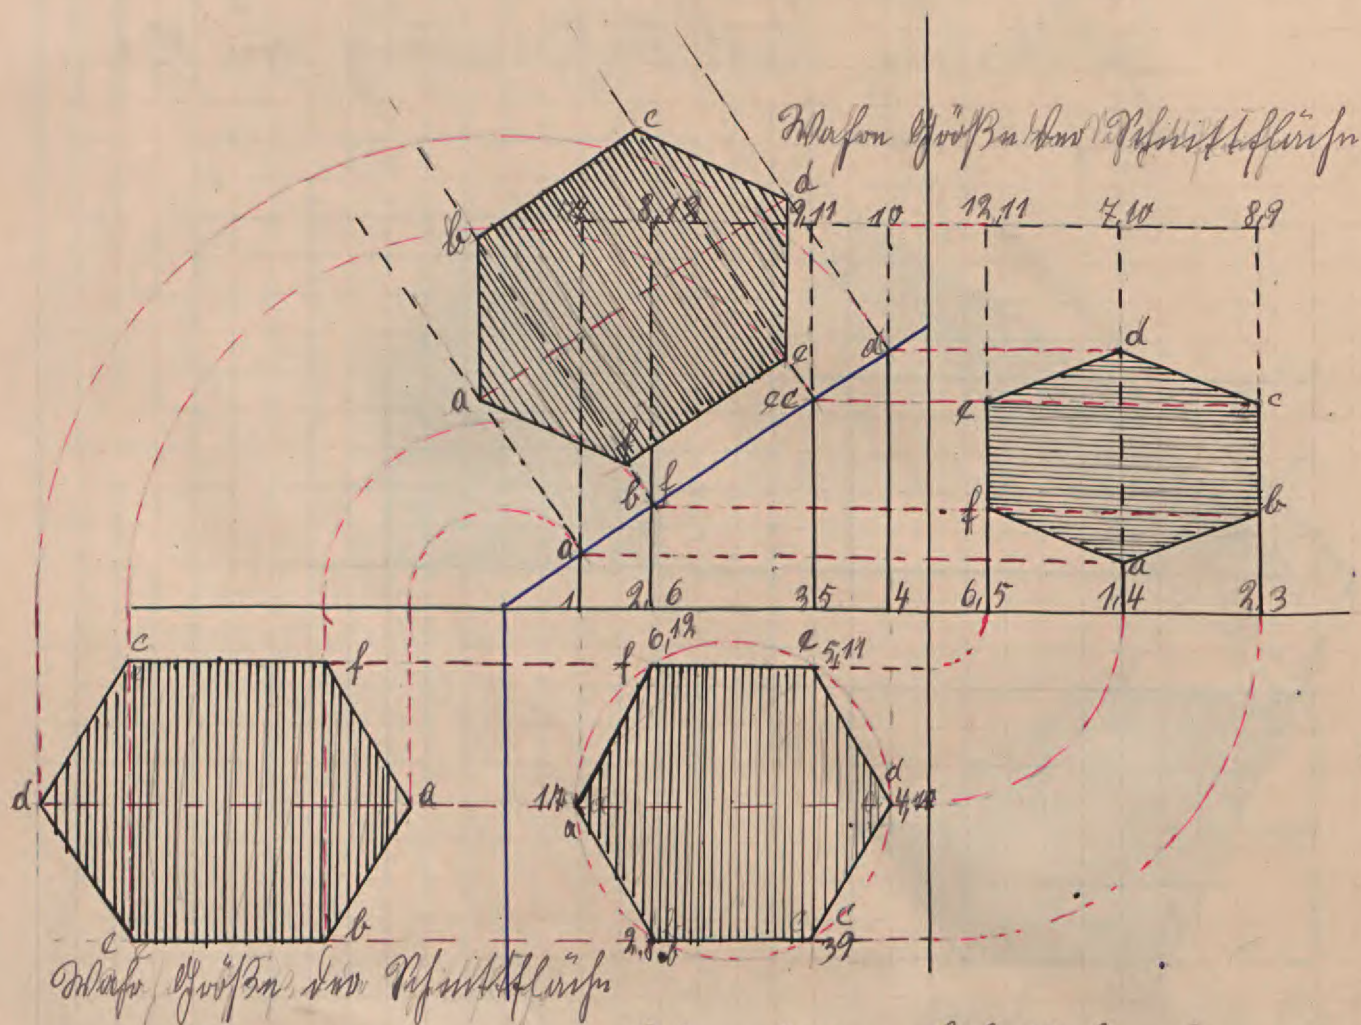 Wahre Größe der Schnittfläche
c
d
b
7 8,12 9,11 10 12,11 7,10 8,9
d
d
e
a
e c
e c
f
b f
f b
a
a
1 2,6 3,5 4 6,5 1,4 2,3
c
e
f
6,12
f
e 5,11
d a
1,7 a
a
d
4,10
e b
2,8 b
c
3,9
Wahre Größe der Schnittfläche